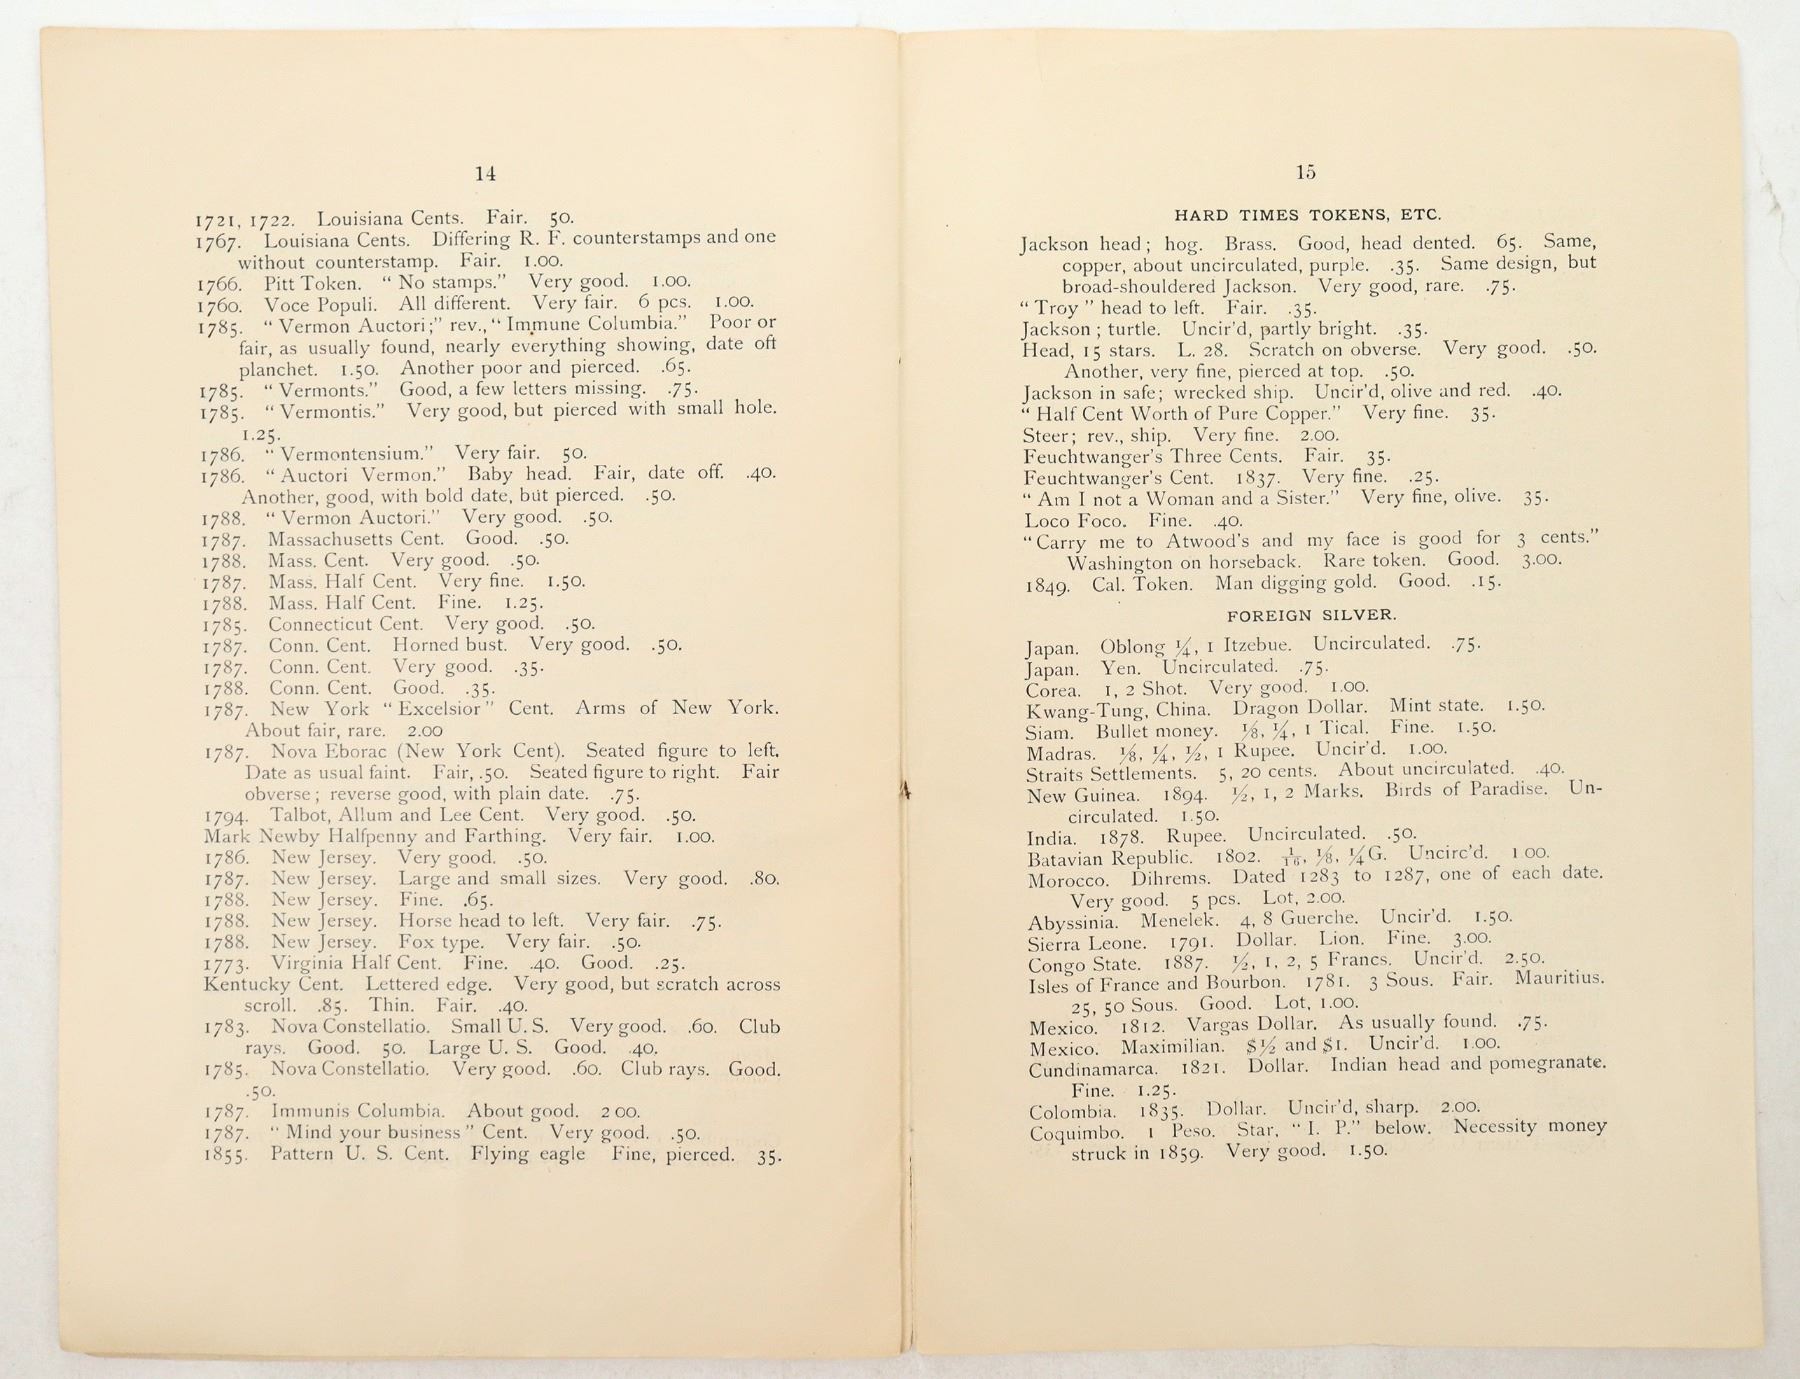 14
1721, 1722. Louisiana Cents. Fair. 50.
1767. Louisiana Cents. Differing R. F. counterstamps and one
without counterstamp. Fair. 1.00.
1766. Pitt Token. “ No stamps.” Very good. 1.00.
1760. Voce Populi. All different. Very fair. 6 pcs. 1.00.
1785. “ Vermon Auctori ;” rev., “ Immune Columbia.” Poor or
fair, as usually found, nearly everything showing, date oft
planchet. 1.50. Another poor and pierced. .65.
1785. “ Vermonts.” Good, a few letters missing. .75.
1785. “ Vermontis.” Very good, but pierced with small hole.
1.25.
1786. “ Vermontensium.” Very fair. 50.
1786. “ Auctori Vermon.” Baby head. Fair, date off. .40.
Another, good, with bold date, but pierced. .50.
1788. “ Vermon Auctori.” Very good. .50.
1787. Massachusetts Cent. Good. .50.
1788. Mass. Cent. Very good. .50.
1787. Mass. Half Cent. Very fine. 1.50.
1788. Mass. Half Cent. Fine. 1.25.
1785. Connecticut Cent. Very good. .50.
1787. Conn. Cent. Horned bust. Very good. .50.
1787. Conn. Cent. Very good. .35.
1788. Conn. Cent. Good. .35.
1787. New York “ Excelsior ” Cent. Arms of New York.
About fair, rare. 2.00
1787. Nova Eborac (New York Cent). Seated figure to left.
Date as usual faint. Fair, .50. Seated figure to right. Fair
obverse ; reverse good, with plain date. .75.
1794. Talbot, Allum and Lee Cent. Very good. .50.
Mark Newby Halfpenny and Farthing. Very fair. 1.00.
1786. New Jersey. Very good. .50.
1787. New Jersey. Large and small sizes. Very good. .80.
1788. New Jersey. Fine. .65.
1788. New Jersey. Horse head to left. Very fair. .75.
1788. New Jersey. Fox type. Very fair. .50.
1773. Virginia Half Cent. Fine. .40. Good. .25.
Kentucky Cent. Lettered edge. Very good, but scratch across
scroll. .85. Thin. Fair. .40.
1783. Nova Constellatio. Small U. S. Very good. .60. Club
rays. Good. 50. Large U. S. Good. .40.
1785. Nova Constellatio. Very good. .60. Club rays. Good.
.50.
1787. Immunis Columbia. About good. 2 00.
1787. “ Mind your business ” Cent. Very good. .50.
1855. Pattern U. S. Cent. Flying eagle Fine, pierced. 35.
15
HARD TIMES TOKENS, ETC.
Jackson head ; hog. Brass. Good, head dented. 65. Same,
copper, about uncirculated, purple. .35. Same design, but
broad-shouldered Jackson. Very good, rare. .75.
“ Troy ” head to left. Fair. .35.
Jackson ; turtle. Uncir’d, partly bright. .35.
Head, 15 stars. L. 28. Scratch on obverse. Very good. .50.
Another, very fine, pierced at top. .50.
Jackson in safe; wrecked ship. Uncir’d, olive and red. .40.
“ Half Cent Worth of Pure Copper.” Very fine. 35.
Steer ; rev., ship. Very fine. 2.00.
Feuchtwanger’s Three Cents. Fair. 35.
Feuchtwanger’s Cent. 1837. Very fine. .25.
“ Am I not a Woman and a Sister.” Very fine, olive. 35.
Loco Foco. Fine. .40.
“ Carry me to Atwood’s and my face is good for 3 cents.”
Washington on horseback. Rare token. Good. 3.00.
1849. Cal. Token. Man digging gold. Good. .15.
FOREIGN SILVER.
Japan. Oblong ¼, 1 Itzebue. Uncirculated. .75.
Japan. Yen. Uncirculated. .75.
Corea. 1, 2 Shot. Very good. 1.00.
Kwang-Tung, China. Dragon Dollar. Mint state. 1.50.
Siam. Bullet money. ⅛, ¼, 1 Tical. Fine. 1.50.
Madras. ⅛, ¼, ½, 1 Rupee. Uncir’d. 1.00.
Straits Settlements. 5, 20 cents. About uncirculated. .40.
New Guinea. 1894. ½, 1, 2 Marks. Birds of Paradise. Un-
circulated. 1.50.
India. 1878. Rupee. Uncirculated. .50.
Batavian Republic. 1802. 1/16, ⅛, ¼ G. Uncirc’d. 1 00.
Morocco. Dihrems. Dated 1283 to 1287, one of each date.
Very good. 5 pcs. Lot, 2.00.
Abyssinia. Menelek. 4, 8 Guerche. Uncir’d. 1.50.
Sierra Leone. 1791. Dollar. Lion. Fine. 3.00.
Congo State. 1887. ½, 1, 2, 5 Francs. Uncir’d. 2.50.
Isles of France and Bourbon. 1781. 3 Sous. Fair. Mauritius.
25, 50 Sous. Good. Lot, 1.00.
Mexico. 1812. Vargas Dollar. As usually found. .75.
Mexico. Maximilian. $½ and $1. Uncir’d. 1.00.
Cundinamarca. 1821. Dollar. Indian head and pomegranate.
Fine. 1.25.
Colombia. 1835. Dollar. Uncir’d, sharp. 2.00.
Coquimbo. 1 Peso. Star, “ I. P.” below. Necessity money
struck in 1859. Very good. 1.50.